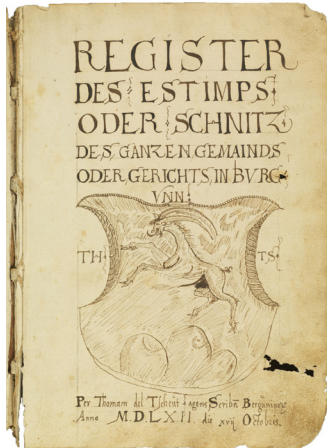 REGISTER
DES ESTIMPS
ODER SCHNITZ
DES GANZEN GEMAINDS
ODER GERICHTS IN BVRG
VNN
TH TS
Per Thomam del Tschent Tagans Scribā
Anno M.D.LXII. die xvij Octobris.